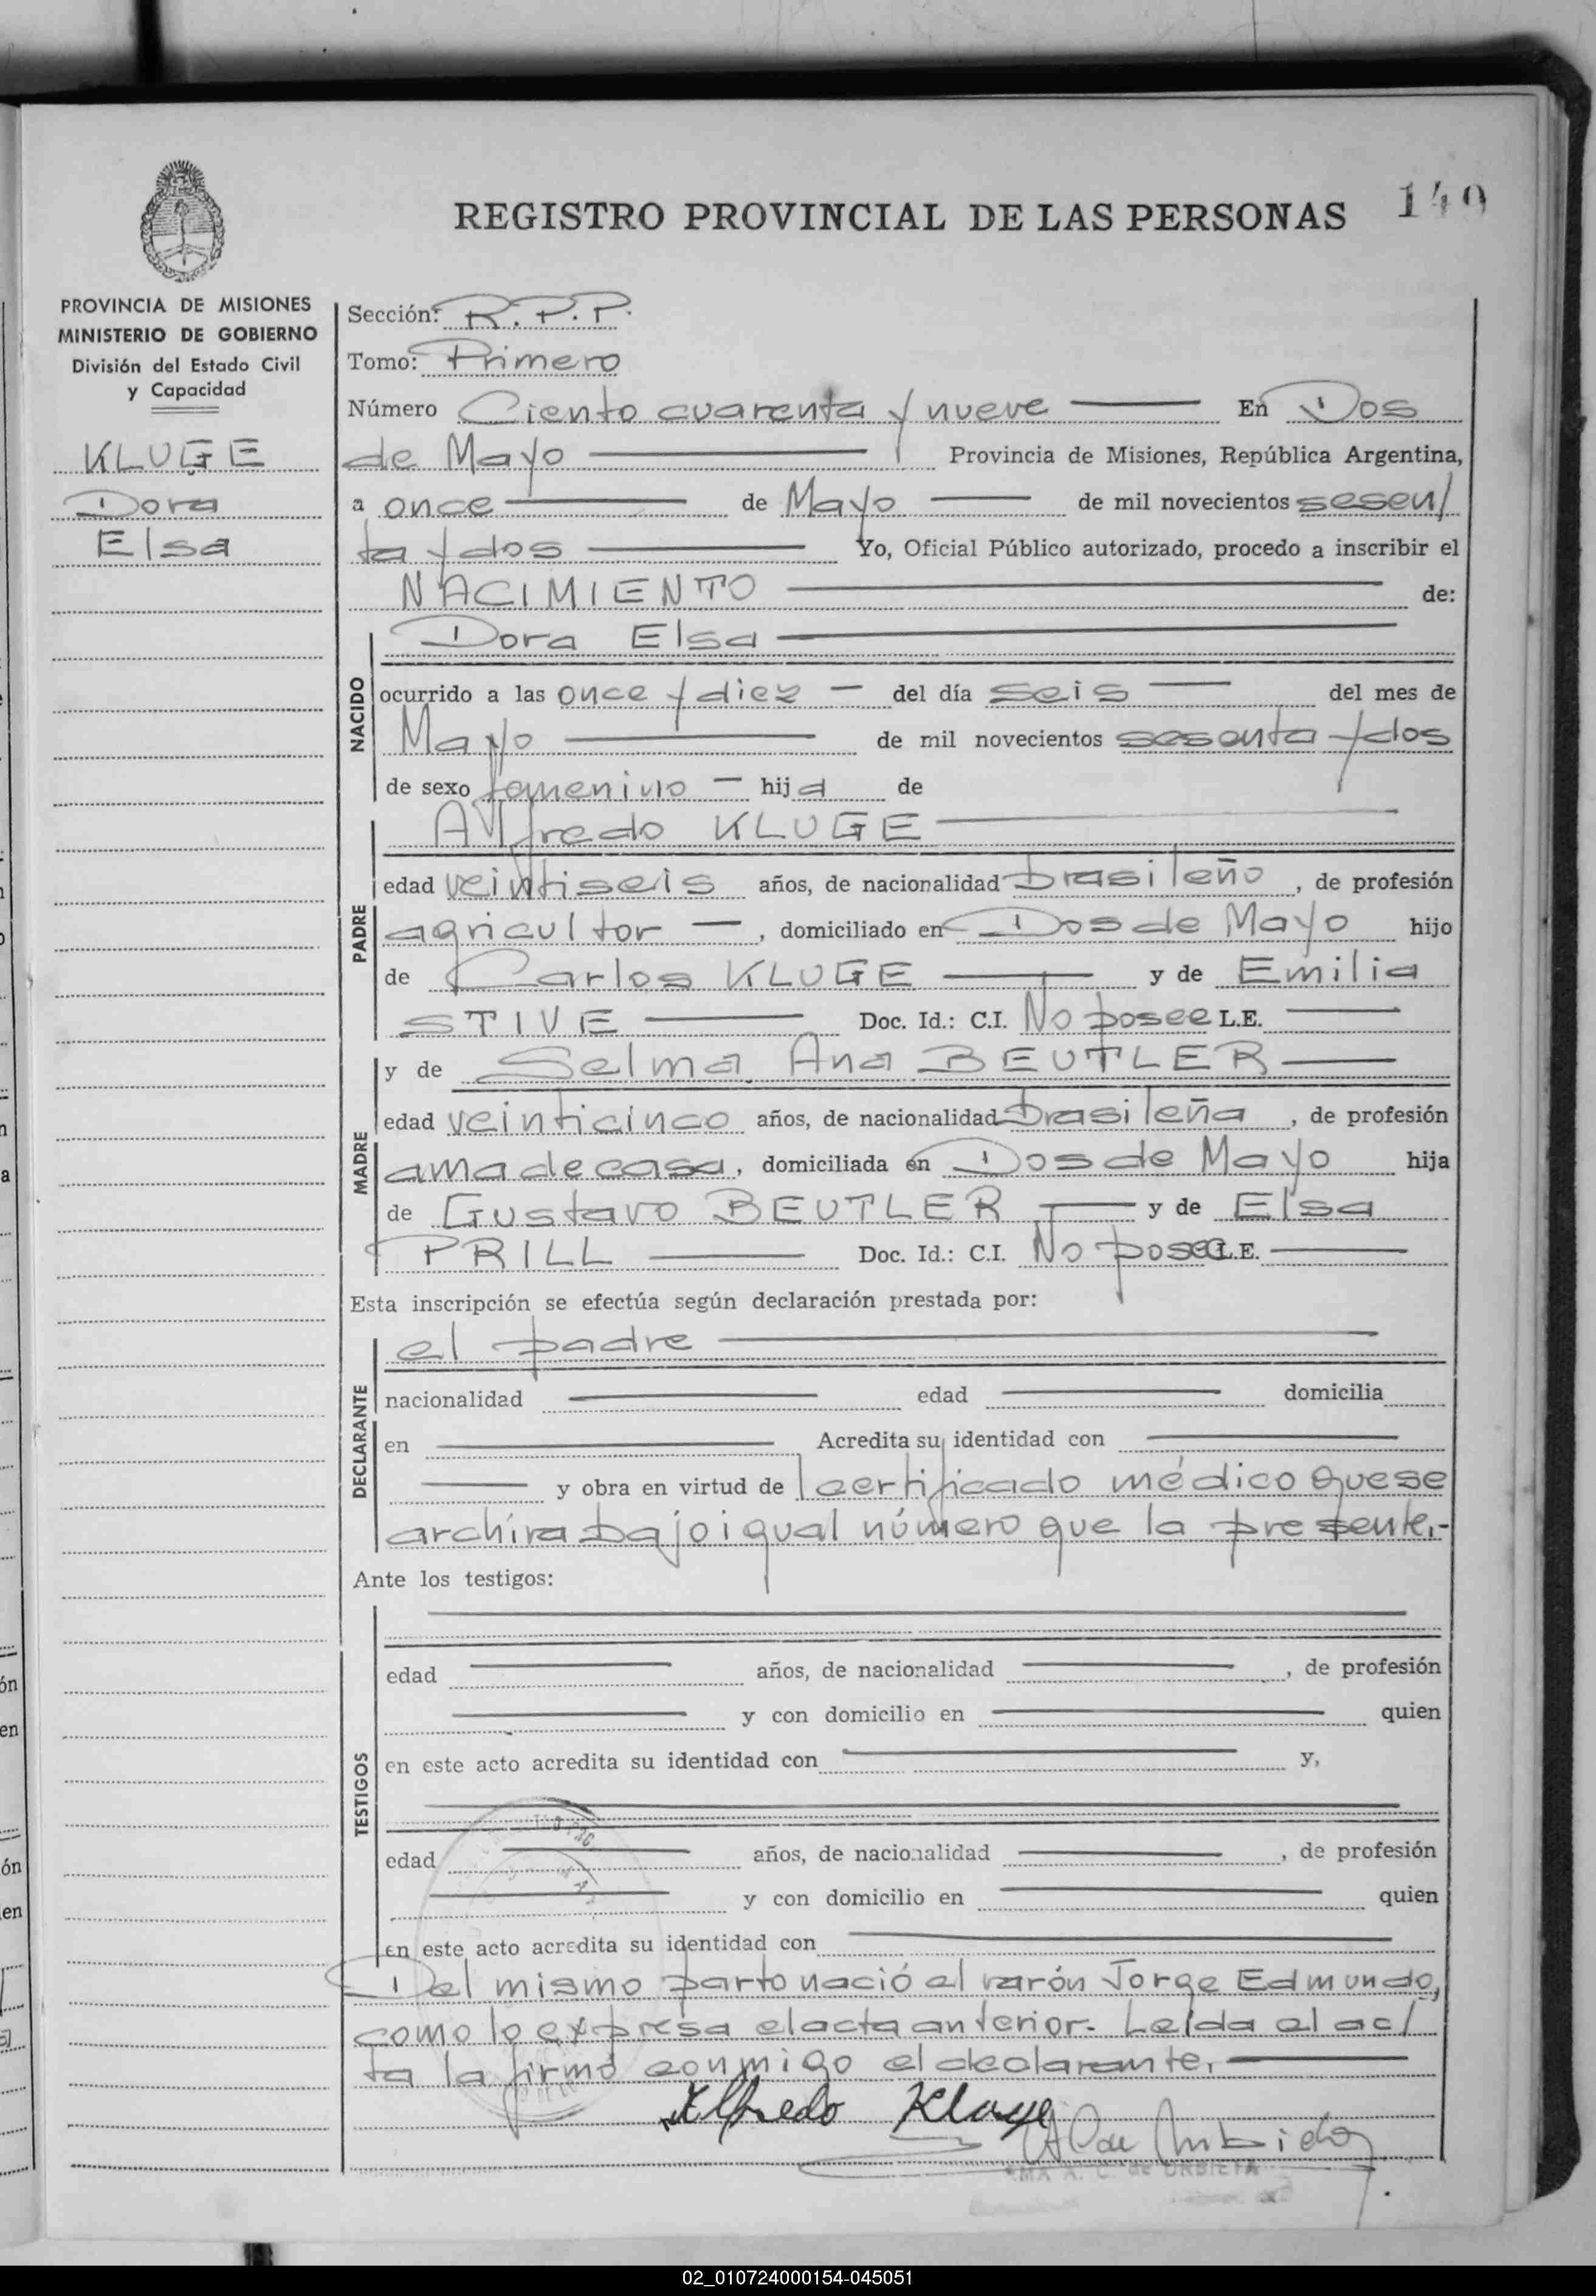 REGISTRO PROVINCIAL DE LAS PERSONAS
149
PROVINCIA DE MISIONES
MINISTERIO DE GOBIERNO
División del Estado Civil
y Capacidad
KLUGE
Dora
Elsa
Sección: R.P.P.
Tomo: Primero
Número Ciento cuarenta y nueve En Dos
de Mayo Provincia de Misiones, República Argentina,
a once de Mayo de mil novecientos sesen/
ta y dos Yo, Oficial Público autorizado, procedo a inscribir el
NACIMIENTO de:
NACIDO
Dora Elsa
ocurrido a las once y diez del día seis del mes de
Mayo de mil novecientos sesenta y dos
de sexo femenino hija de
PADRE
Alfredo KLUGE
edad veintiseis años, de nacionalidad brasileño, de profesión
agricultor, domiciliado en Dos de Mayo hijo
de Carlos KLUGE y de Emilia
STIVE Doc. Id.: C.I. No posee L.E.
MADRE
y de Selma Ana BEUTLER
edad veinticinco años, de nacionalidad brasileña, de profesión
ama de casa, domiciliada en Dos de Mayo hija
de Gustavo BEUTLER y de Elsa
PRILL Doc. Id.: C.I. No posee L.E.
Esta inscripción se efectúa según declaración prestada por:
DECLARANTE
el padre
nacionalidad edad domicilia
en Acredita su identidad con
y obra en virtud de l certificado médico que se
archiva bajo igual número que la presente.-
Ante los testigos:
TESTIGOS
edad años, de nacionalidad , de profesión
y con domicilio en quien
en este acto acredita su identidad con y,
edad años, de nacionalidad , de profesión
y con domicilio en quien
en este acto acredita su identidad con
Del mismo parto nació el varón Jorge Edmundo,
como lo expresa el acta anterior.- Leída el ac/
ta la firmó conmigo el declarante.
Alfredo Kluge
A. C. de URBIETA
02_010724000154-045051